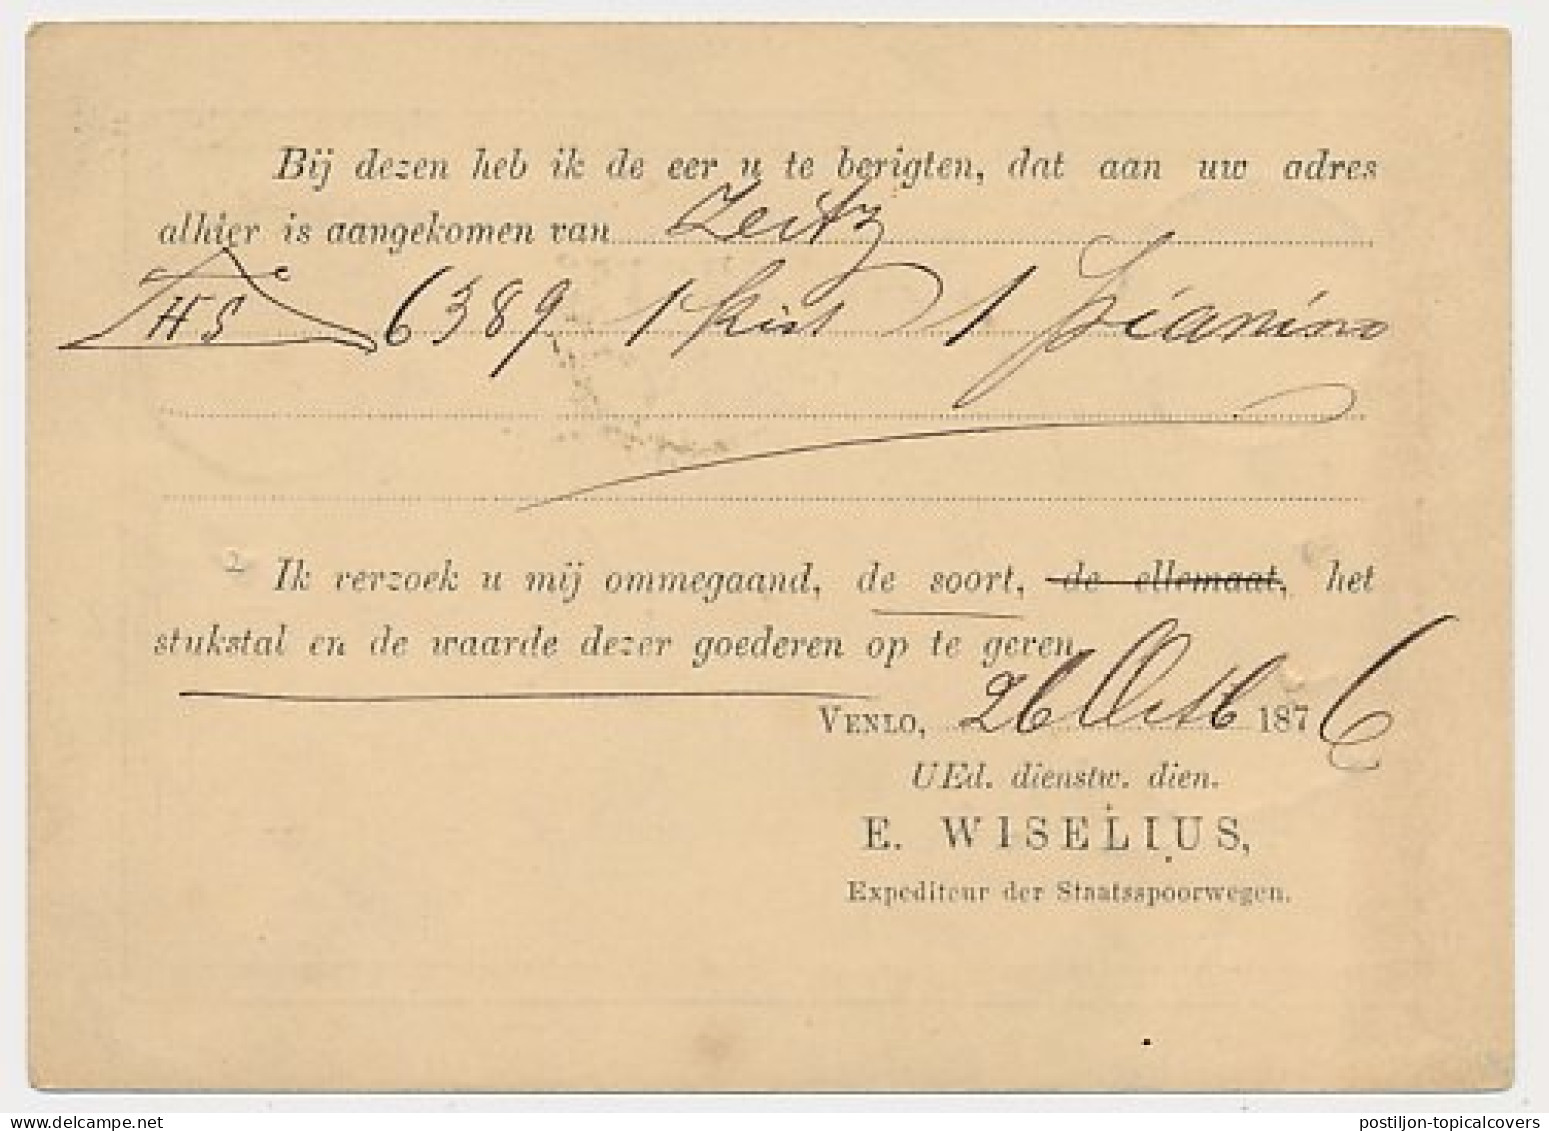 Bij dezen heb ik de eer u te berigten, dat aan uw adres
alhier is aangekomen van Zeitz
HS 6389 1 kist 1 pianino
Ik verzoek u mij ommegaand, de soort, de ellemaat, het
stukstal en de waarde dezer goederen op te geven
VENLO, 26 Octb 1876
UEd. dienstw. dien.
E. WISELIUS,
Expediteur der Staatsspoorwegen.
postiljon-topicalcovers